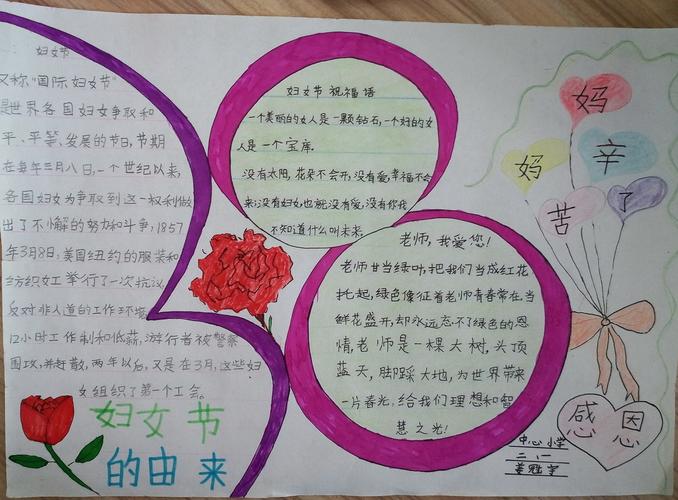 妇女节
又称"国际妇女节"
是世界各国妇女争取和
平、平等、发展的节日，节期
在每年三月八日，一个世纪以来，
各国妇女为争取到这一权利做
出了不懈的努力和斗争，1857
年3月8号，美国纽约的服装和
纺织女工举行了一次抗议
反对非人道的工作环境
12小时工作制和低薪，游行者被警察
围攻，并赶散，两年以后，又是在3月，这些妇
女组织了第一个工会。
妇女节
的由来
妇女节祝福语
一个美丽的女人是一颗钻石，一个好的女
人是一个宝库。
没有太阳，花朵不会开，没有爱，幸福不会
来，没有妇女，也就没有爱，没有你我
不知道什么叫未来。
老师，我爱您！
老师甘当绿叶，把我们当成红花
托起，绿色像征着老师青春常在，当
鲜花盛开，却永远忘不了绿色的恩
情，老师是一棵大树，头顶
蓝天，脚踩大地，为世界带来
一片春光，给我们理想和智
慧之光！
妈
妈
辛
苦
了
感恩
中心小学
二、一